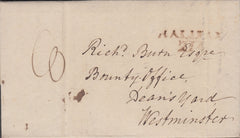 HALIFAX
6
Rich.d Burn Esqre
Bounty Office,
Dean's Yard
Westminster